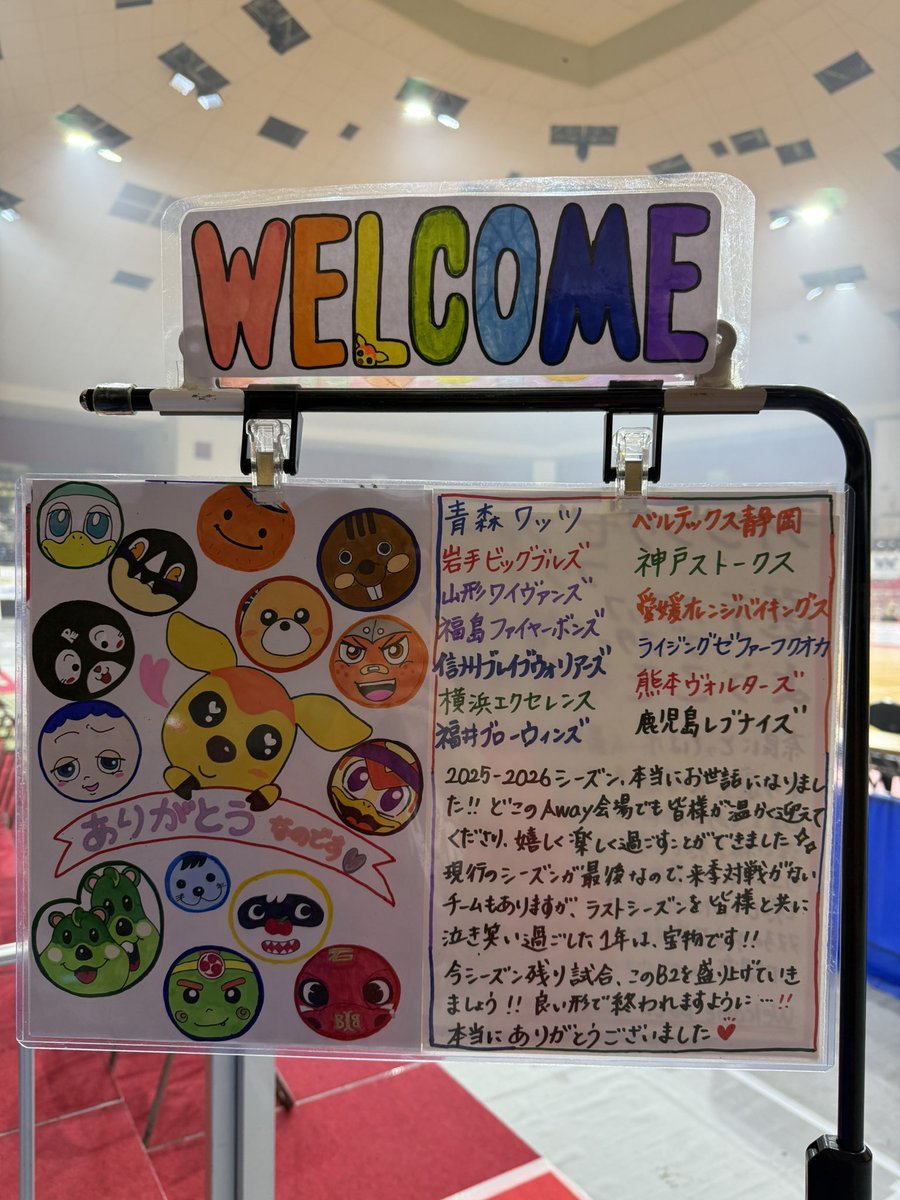 WELCOME
ありがとう
なのです
青森ワッツ
岩手ビッグブルズ
山形ワイヴァンズ
福島ファイヤーボンズ
信州ブレイブウォリアーズ
横浜エクセレンス
福井ブローウィンズ
ベルテックス静岡
神戸ストークス
愛媛オレンジバイキングス
ライジングゼファーフクオカ
熊本ヴォルターズ
鹿児島レブナイズ
2025-2026シーズン、本当にお世話になりまし
た!! どこのAway会場でも皆様が温かく迎えて
くださり、嬉しく楽しく過ごすことができました
現行のシーズンが最後なので、来季対戦がない
チームもありますが、ラストシーズンを皆様と共に
泣き笑い過ごした1年は、宝物です!!
今シーズン残り試合、このB2を盛り上げていき
ましょう!! 良い形で終われますように…!!
本当にありがとうございました